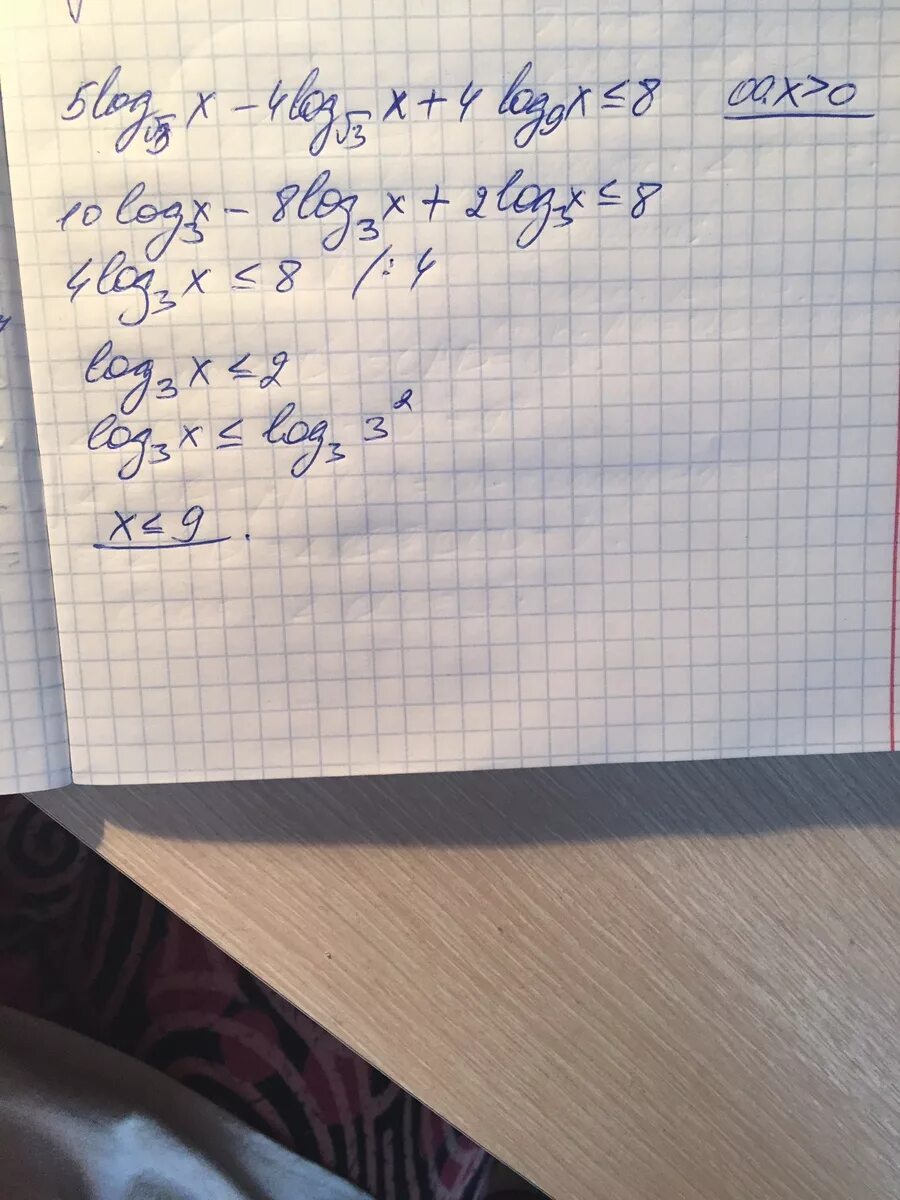 5log_√3 x − 4log_√3 x + 4 log_9 x ≤ 8 00.x>0
10log_3 x − 8log_3 x + 2log_3 x ≤ 8
4log_3 x ≤ 8 /:4
log_3 x ≤ 2
log_3 x ≤ log_3 3²
x ≤ 9.